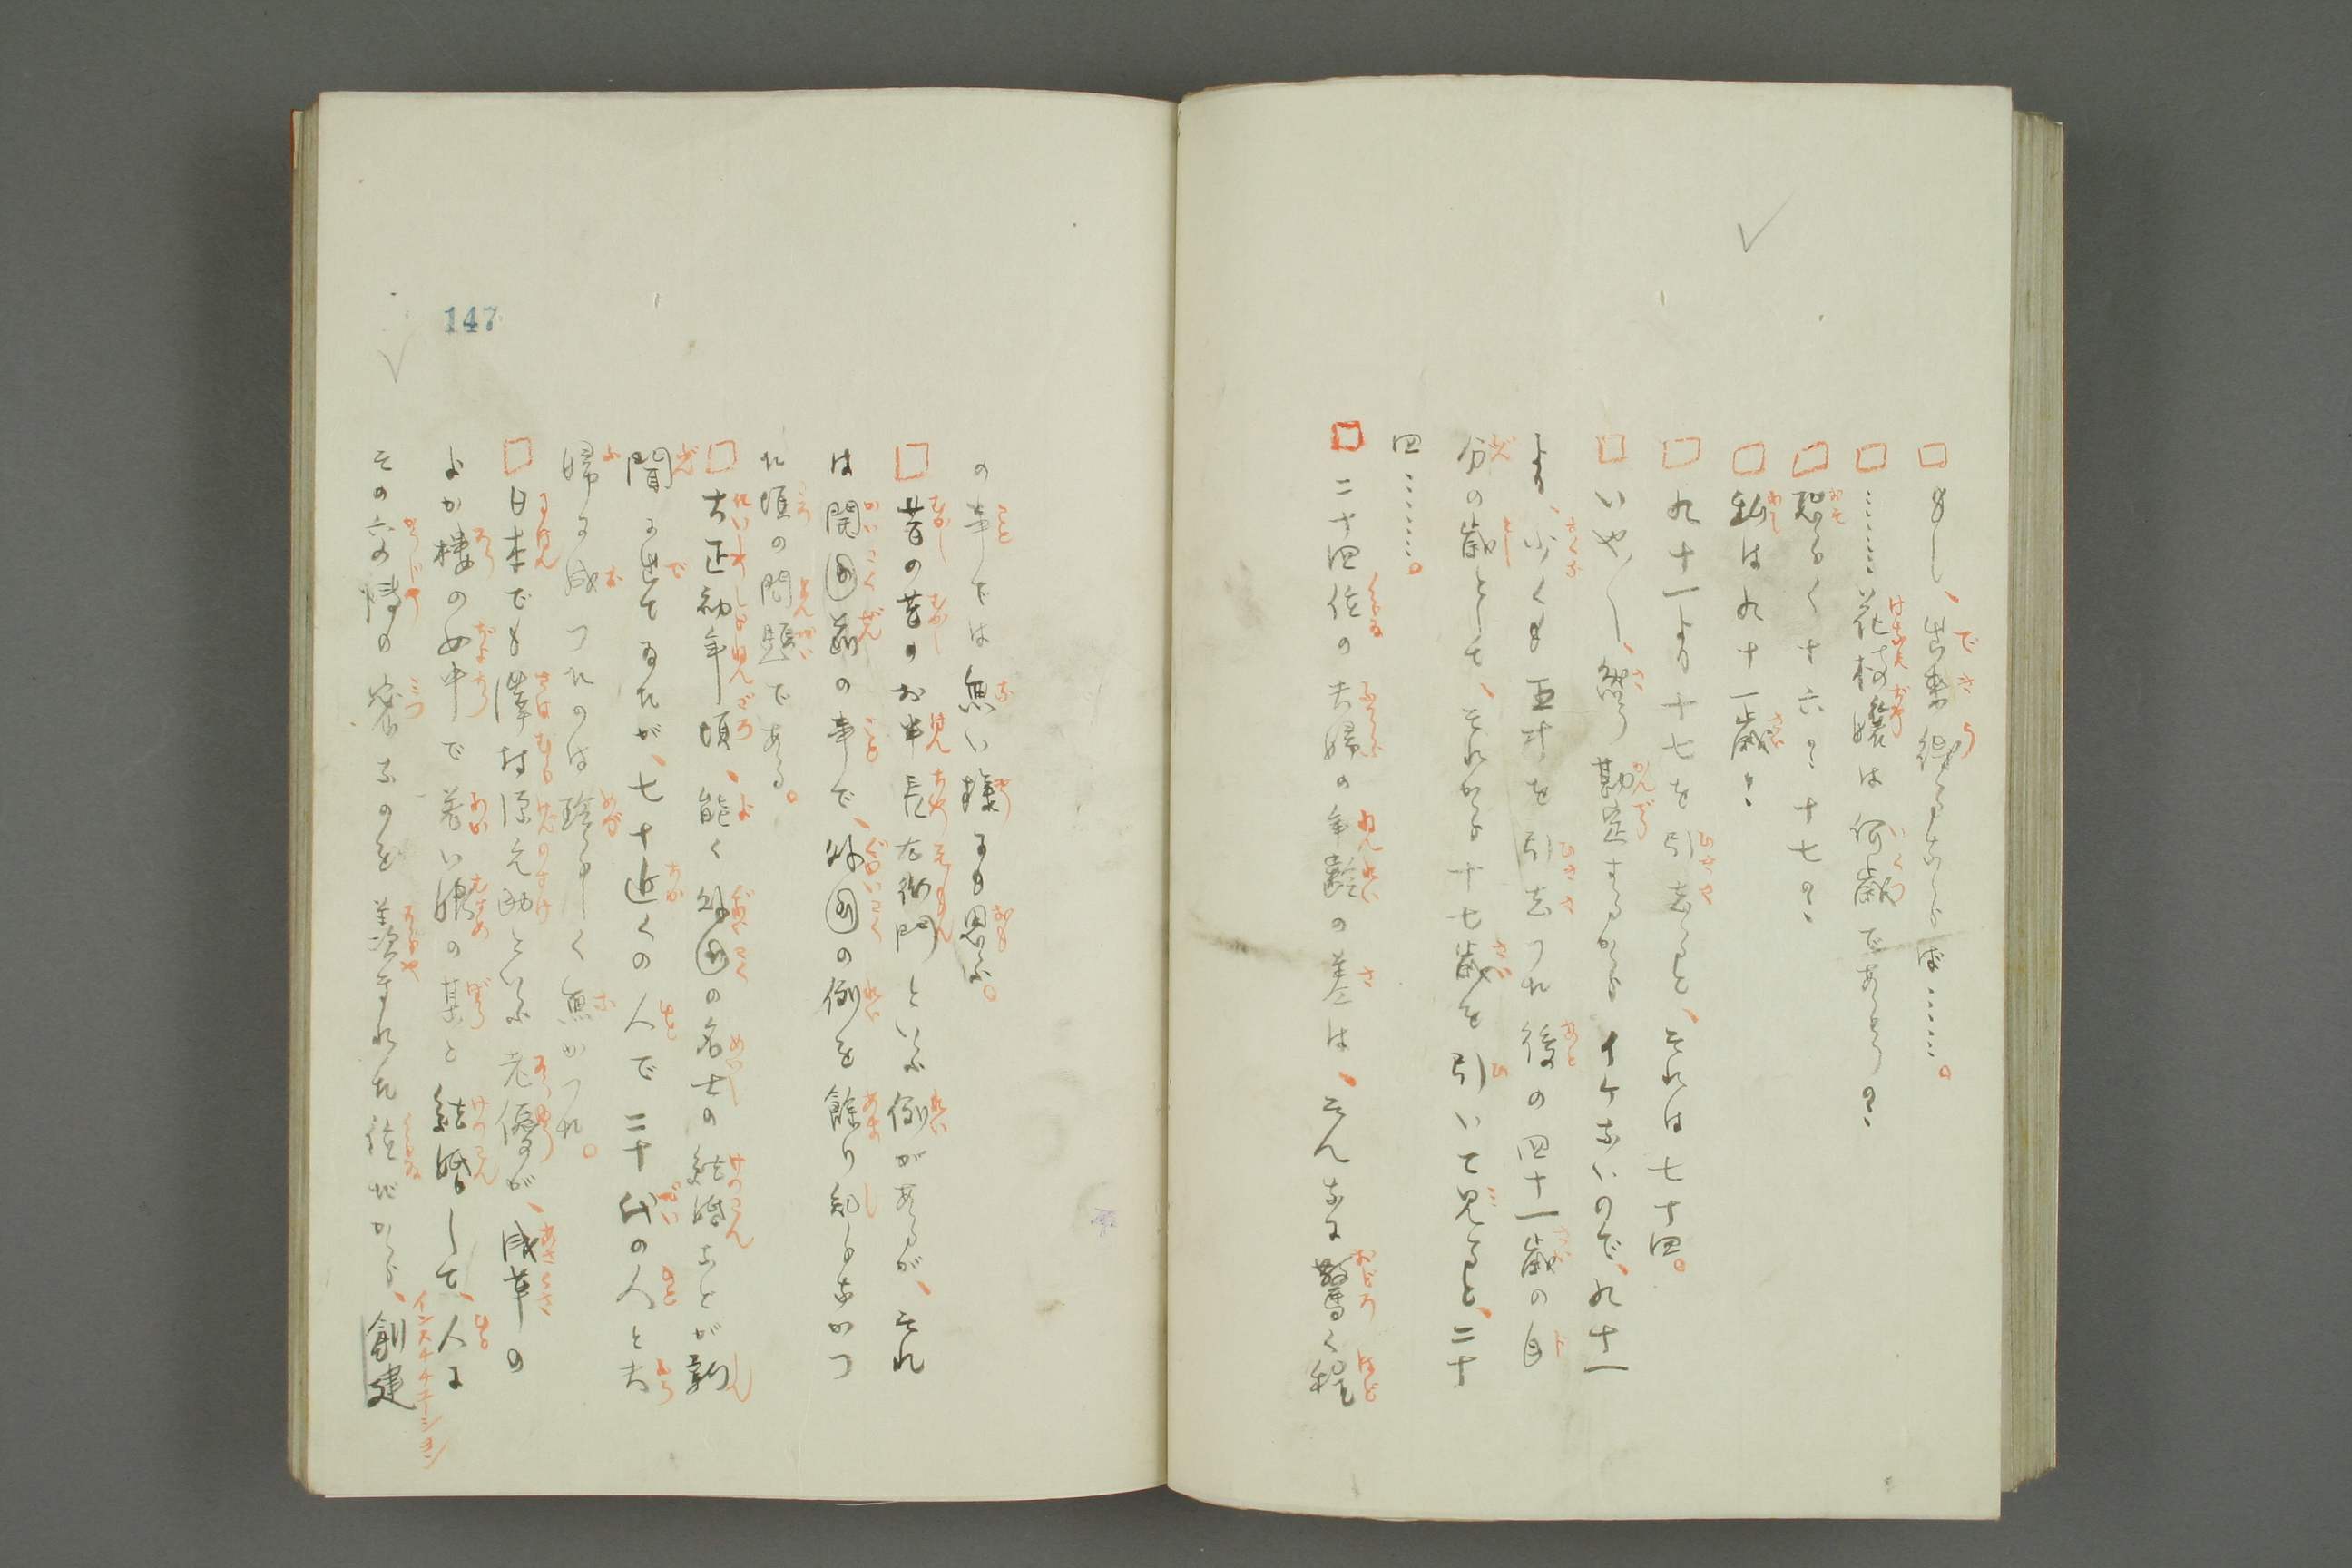 □もし、出来得るならば………。
□………花枝嬢は何歳であらうの？
□恐らく十六？十七？
□私は九十一歳？
□九十一より十七を引去ると、それは七十四。
□いや〳〵、然う勘定するからイケないので、九十一
より、少くも五十を引去つた後の四十一歳の自
分の歳として、それから十七歳を引いて見ると、二十
四………。
□二十四位の夫婦の年齢の差は、そんなに驚く程
の事では無い様にも思ふ。
□昔の昔のお半長右衛門といふ例があるが、それ
は開国前の事で、外国の例を餘り知らなかつ
た頃の問題である。
□大正初年頃、能く外国の名士の結婚ことが新
聞に出てゐたが、七十近くの人で二十代の人と夫
婦に成つたのは珍らしく無かつた。
□日本でも澤村源之助といふ老優が、浅草の
よか楼の女中で若い娘の某と結婚して、人に
その六の情の密なのを羨まれた位だから、創建
147